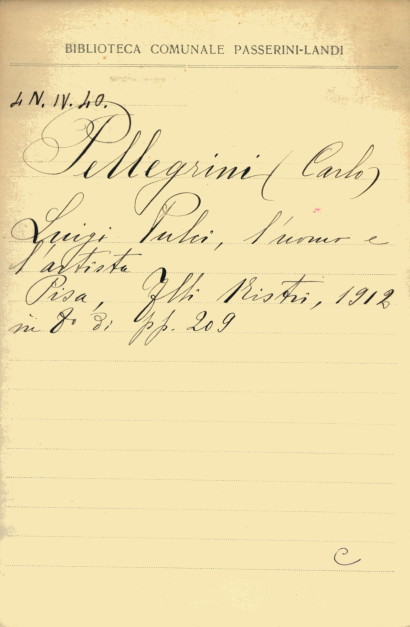 BIBLIOTECA COMUNALE PASSERINI-LANDI
4 N. IV. 40.
Pellegrini (Carlo)
Luigi Pulci, l'uomo e
l'artista
Pisa, Flli Nistri, 1912
in 8° di pp. 209
C